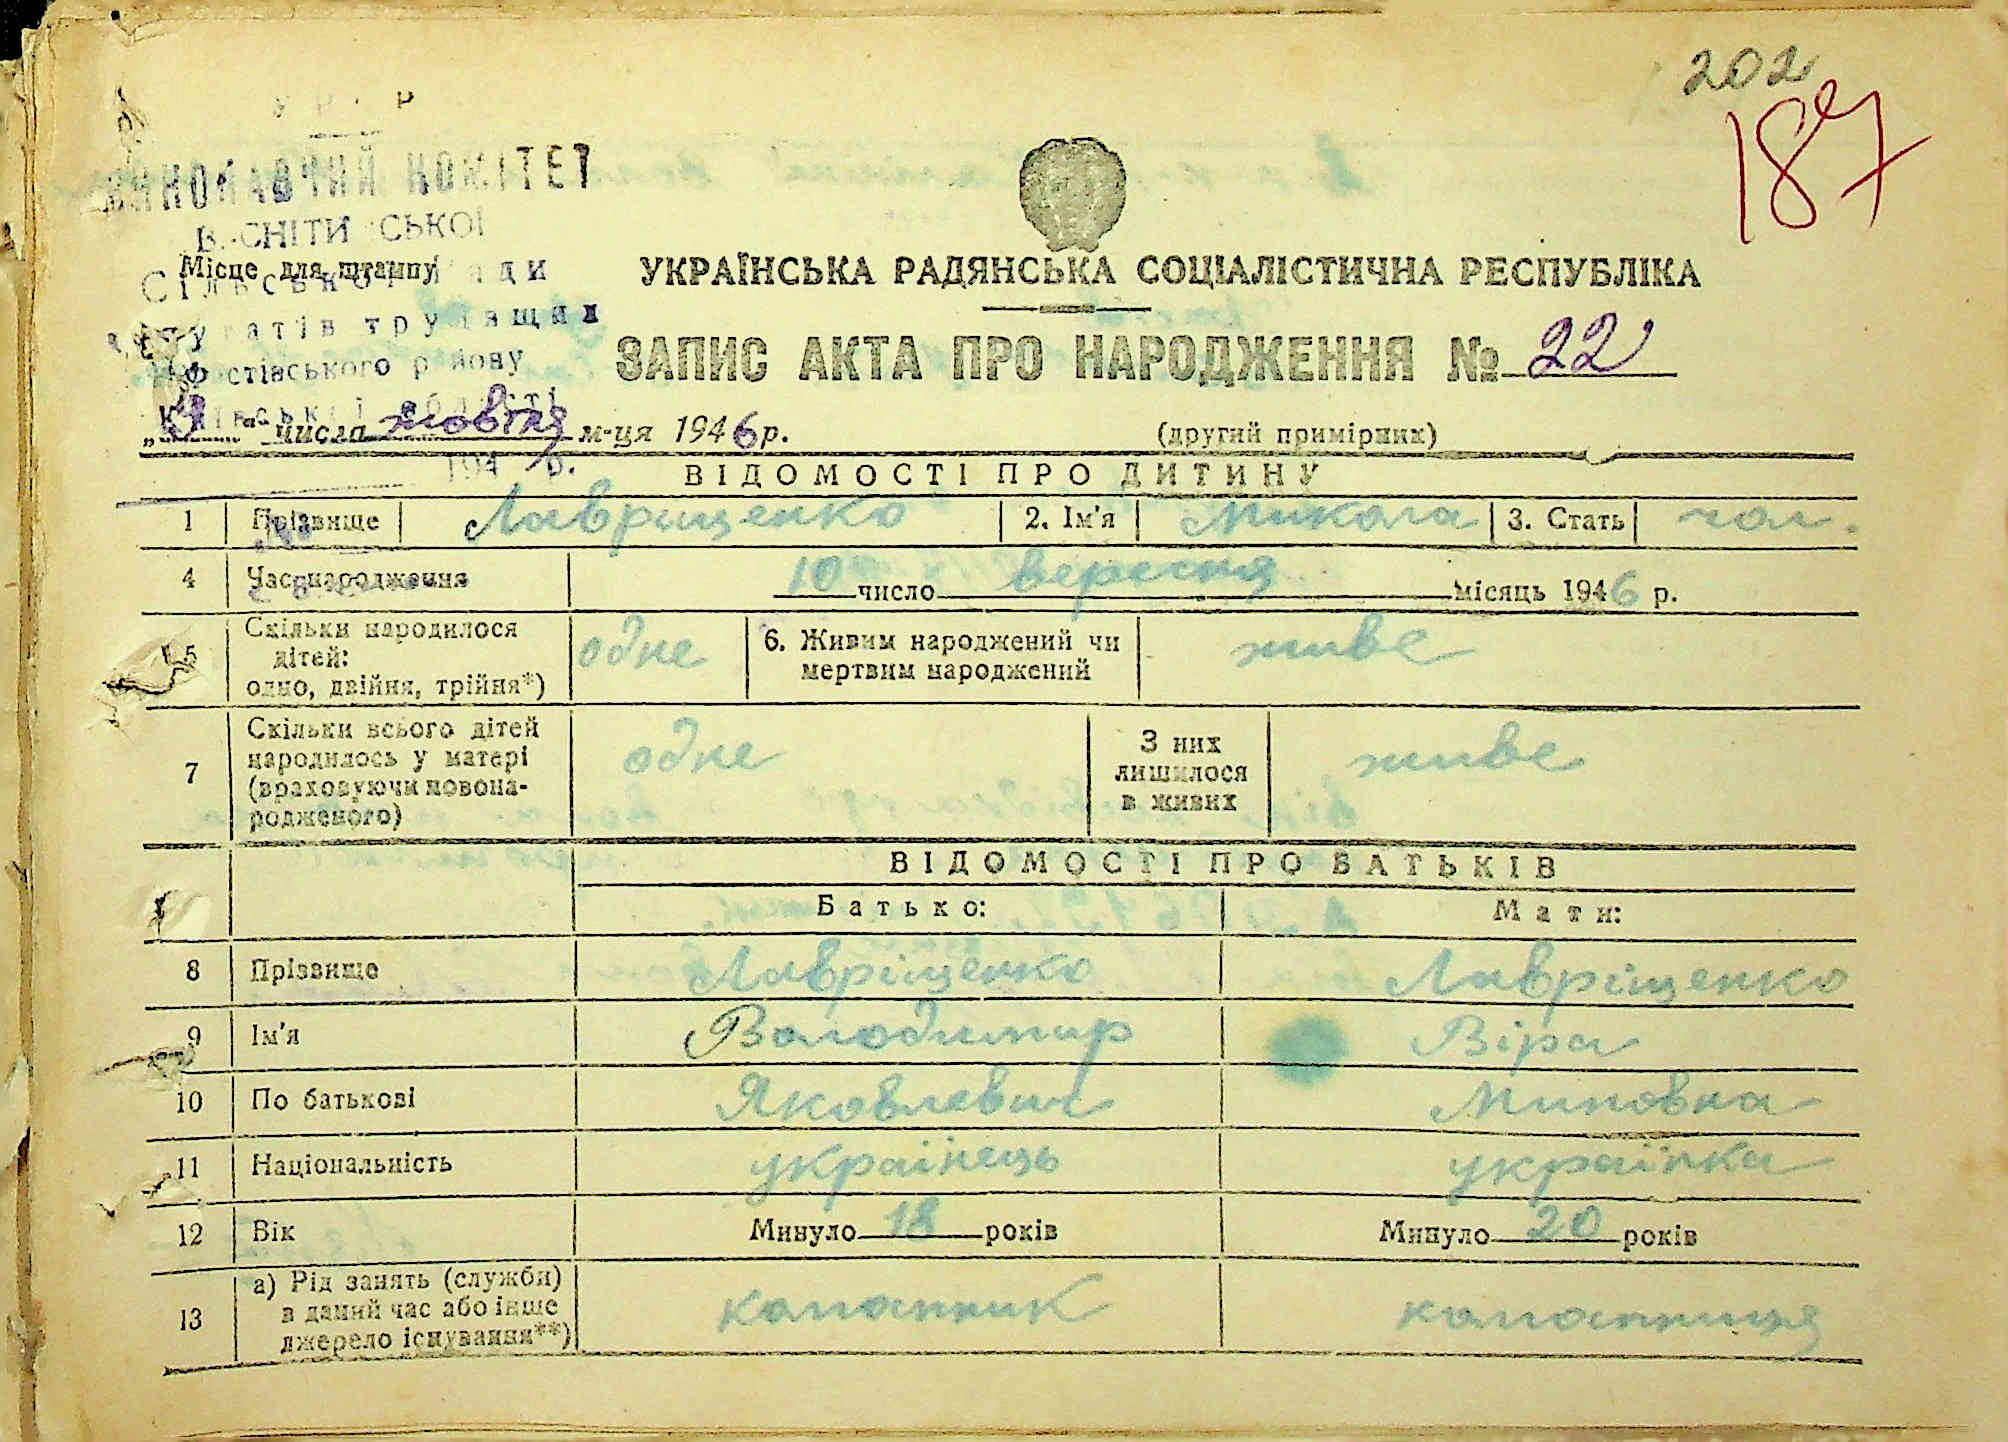 202
187
КОМІТЕТ
СНІТИ СЬКОЇ
Місце для штампу
УКРАЇНСЬКА РАДЯНСЬКА СОЦІАЛІСТИЧНА РЕСПУБЛІКА
ЗАПИС АКТА ПРО НАРОДЖЕННЯ № 22
числа жовтня м-ця 1946 р.
(другий примірник)
ВІДОМОСТІ ПРО ДИТИНУ
1 Прізвище Лавріщенко 2. Ім'я Микола 3. Стать чол.
4 Час народження 10 число вересня місяць 1946 р.
5 Скільки народилося дітей: одно, двійня, трійня*) одне 6. Живим народжений чи мертвим народжений живе
7 Скільки всього дітей народилось у матері (враховуючи новонародженого) одне З них лишилося в живих живе
ВІДОМОСТІ ПРО БАТЬКІВ
Батько: Мати:
8 Прізвище Лавріщенко Лавріщенко
9 Ім'я Володимир Віра
10 По батькові Яковлевич
11 Національність українець українка
12 Вік Минуло 18 років Минуло 20 років
13 а) Рід занять (служби) в даний час або інше джерело існування**)